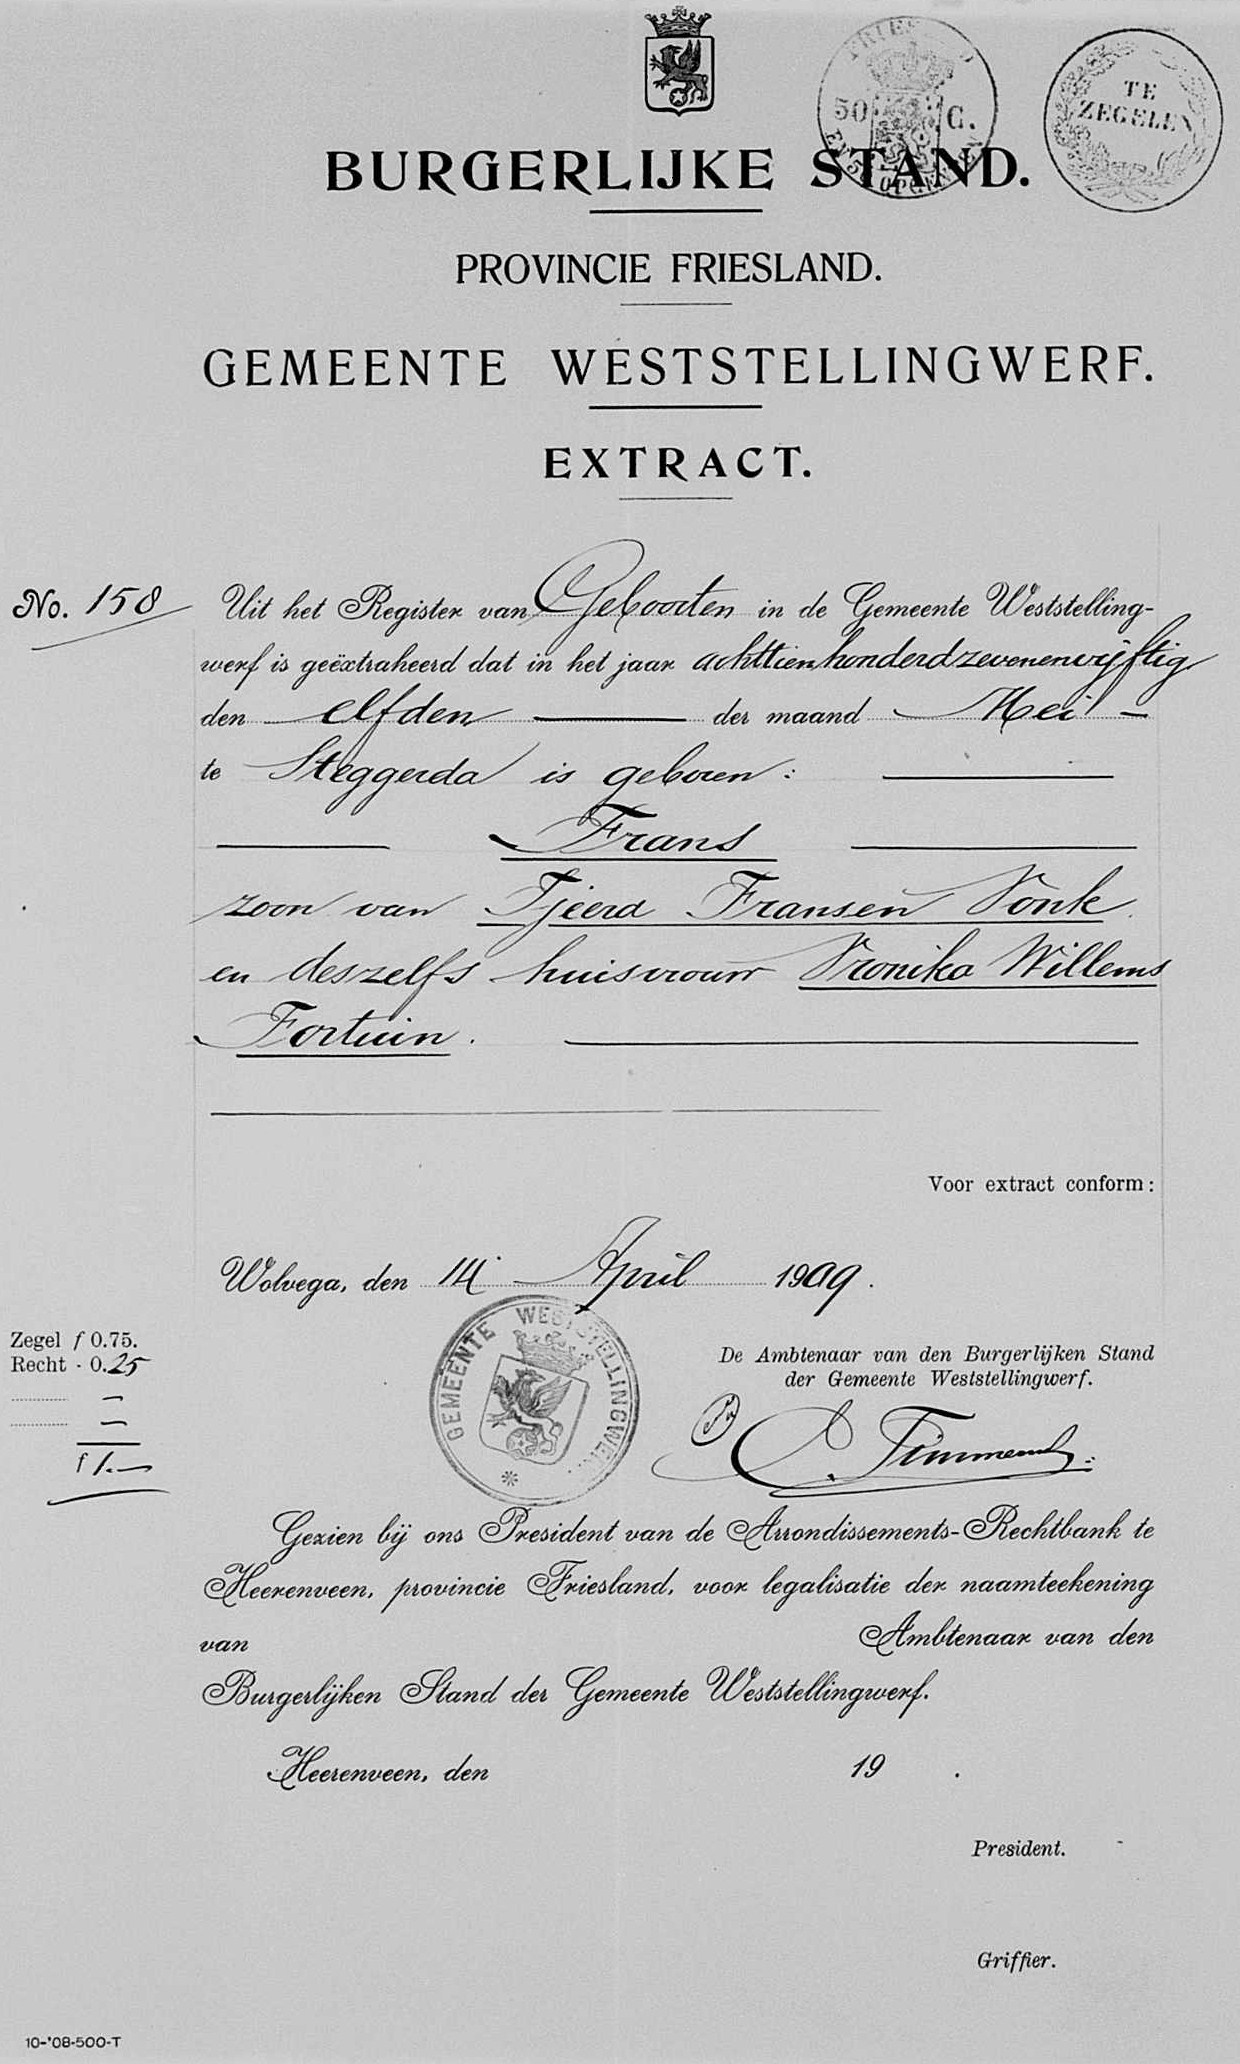 FRIESLAND
50 C.
EN 50 OPCENTEN
TE
ZEGELEN
BURGERLIJKE STAND.
PROVINCIE FRIESLAND.
GEMEENTE WESTSTELLINGWERF.
EXTRACT.
No. 158 Uit het Register van Geboorten in de Gemeente Weststelling-
werf is geëxtraheerd dat in het jaar achttienhonderdzevenenvijftig
den elfden der maand Mei
te Steggerda is geboren:
Frans
zoon van Tjeerd Fransen Vonk
en deszelfs huisvrouw Vronika Willems
Fortuin.
Voor extract conform:
Wolvega, den 14 April 1909.
GEMEENTE WESTSTELLINGWERF.
Zegel f 0.75.
Recht - 0.25
f 1.—
De Ambtenaar van den Burgerlijken Stand
der Gemeente Weststellingwerf.
Gezien bij ons President van de Arrondissements-Rechtbank te
Heerenveen, provincie Friesland, voor legalisatie der naamteekening
van Ambtenaar van den
Burgerlijken Stand der Gemeente Weststellingwerf.
Heerenveen, den 19 .
President.
Griffier.
10-'08-500-T